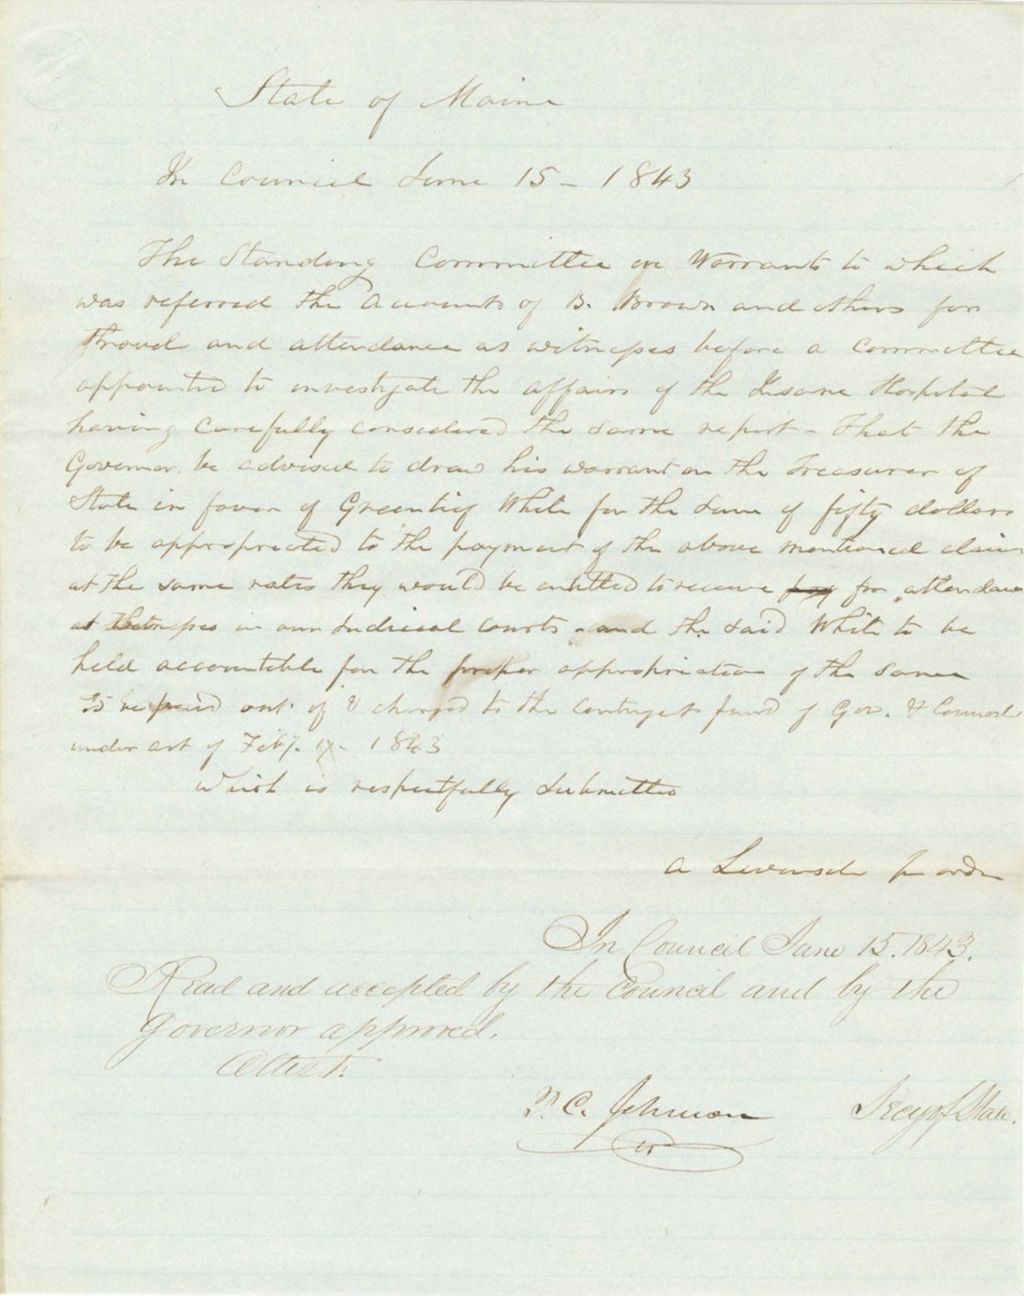 State of Maine
In Council June 15 - 1843
The Standing Committee on Warrants to which
was referred the Accounts of B. Brown and others for
travel and attendance as witnesses before a Committee
appointed to investigate the affairs of the Insane Hospital
having carefully considered the same report - That the
Governor be advised to draw his warrant on the Treasurer of
State in favor of Greenlief White for the sum of fifty dollars
to be appropriated to the payment of the above mentioned claims
at the same rates they would be entitled to receive for attendance
in our Judicial courts - and the said White to be
held accountible for the proper appropriation of the same
To be paid out of & charged to the Contingent fund of Gov. & Council
under act of Feby. 17 - 1843
Which is respectfully submitted
A Levensale pr order
In Council June 15. 1843.
Read and accepted by the Council and by the
Governor approved.
Attest.
P. C. Johnson Secy of State.